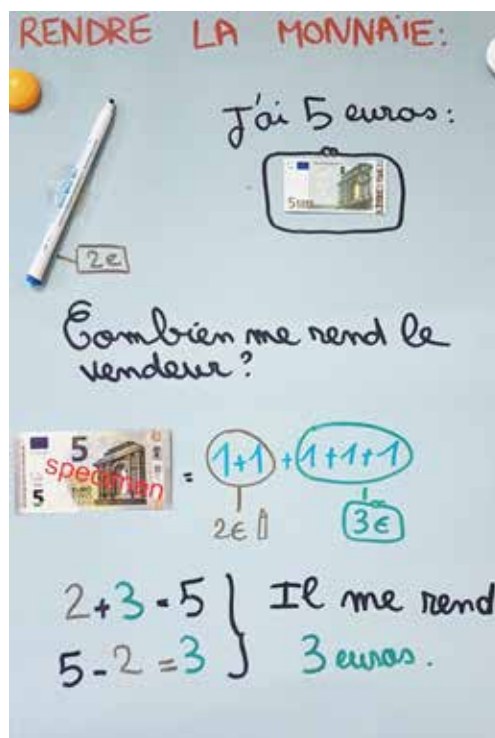 RENDRE LA MONNAIE:
J'ai 5 euros:
5
2€
Combien me rend le
vendeur?
5
specimen
5
= 1+1 + 1+1+1
2€
3€
2+3=5
5-2=3
Il me rend
3 euros.